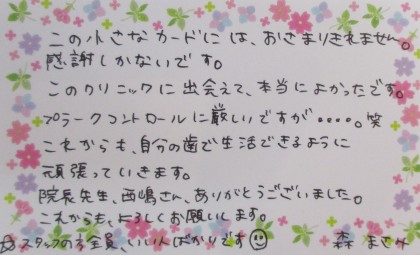 この小さなカードには、おさまりきれません。
感謝しかないです。
このクリニックに出会えて、本当によかったです。
プラークコントロールに厳しいですが・・・・。笑
これからも、自分の歯で生活できるように
頑張っていきます。
院長先生、西嶋さん、ありがとうございました。
これからも、よろしくお願いします。
☆スタッフの方全員、いい人ばかりです☺ 森 まさみ